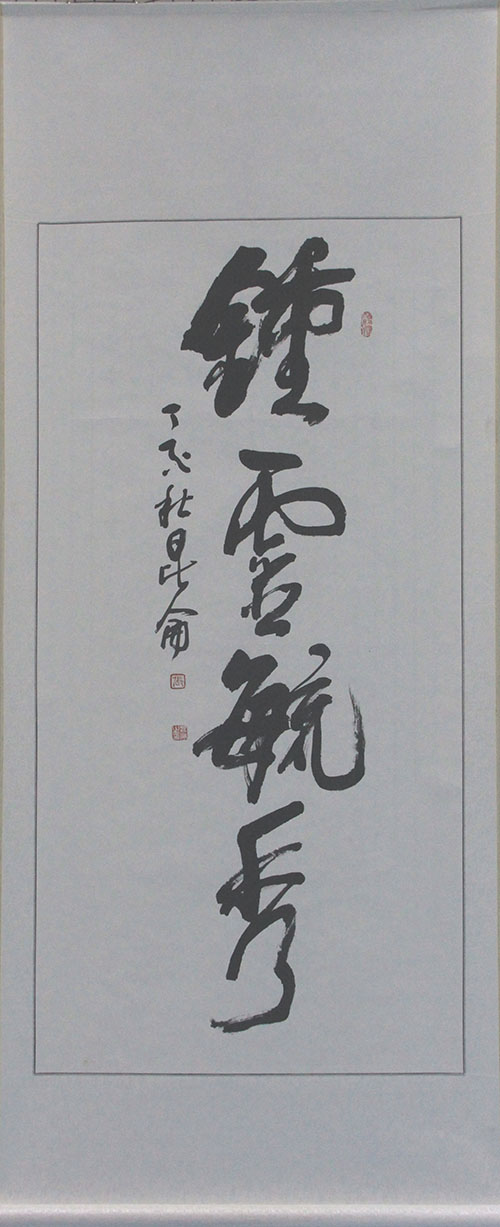 鍾靈毓秀
丁亥秋昆侖